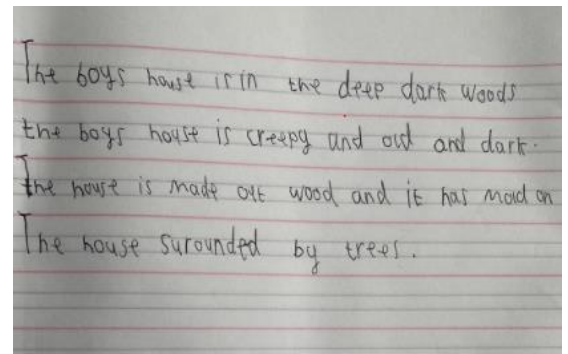 The boys house is in the deep dark woods
the boys house is creepy and old and dark.
The house is made out wood and it has mold on
The house surounded by trees.